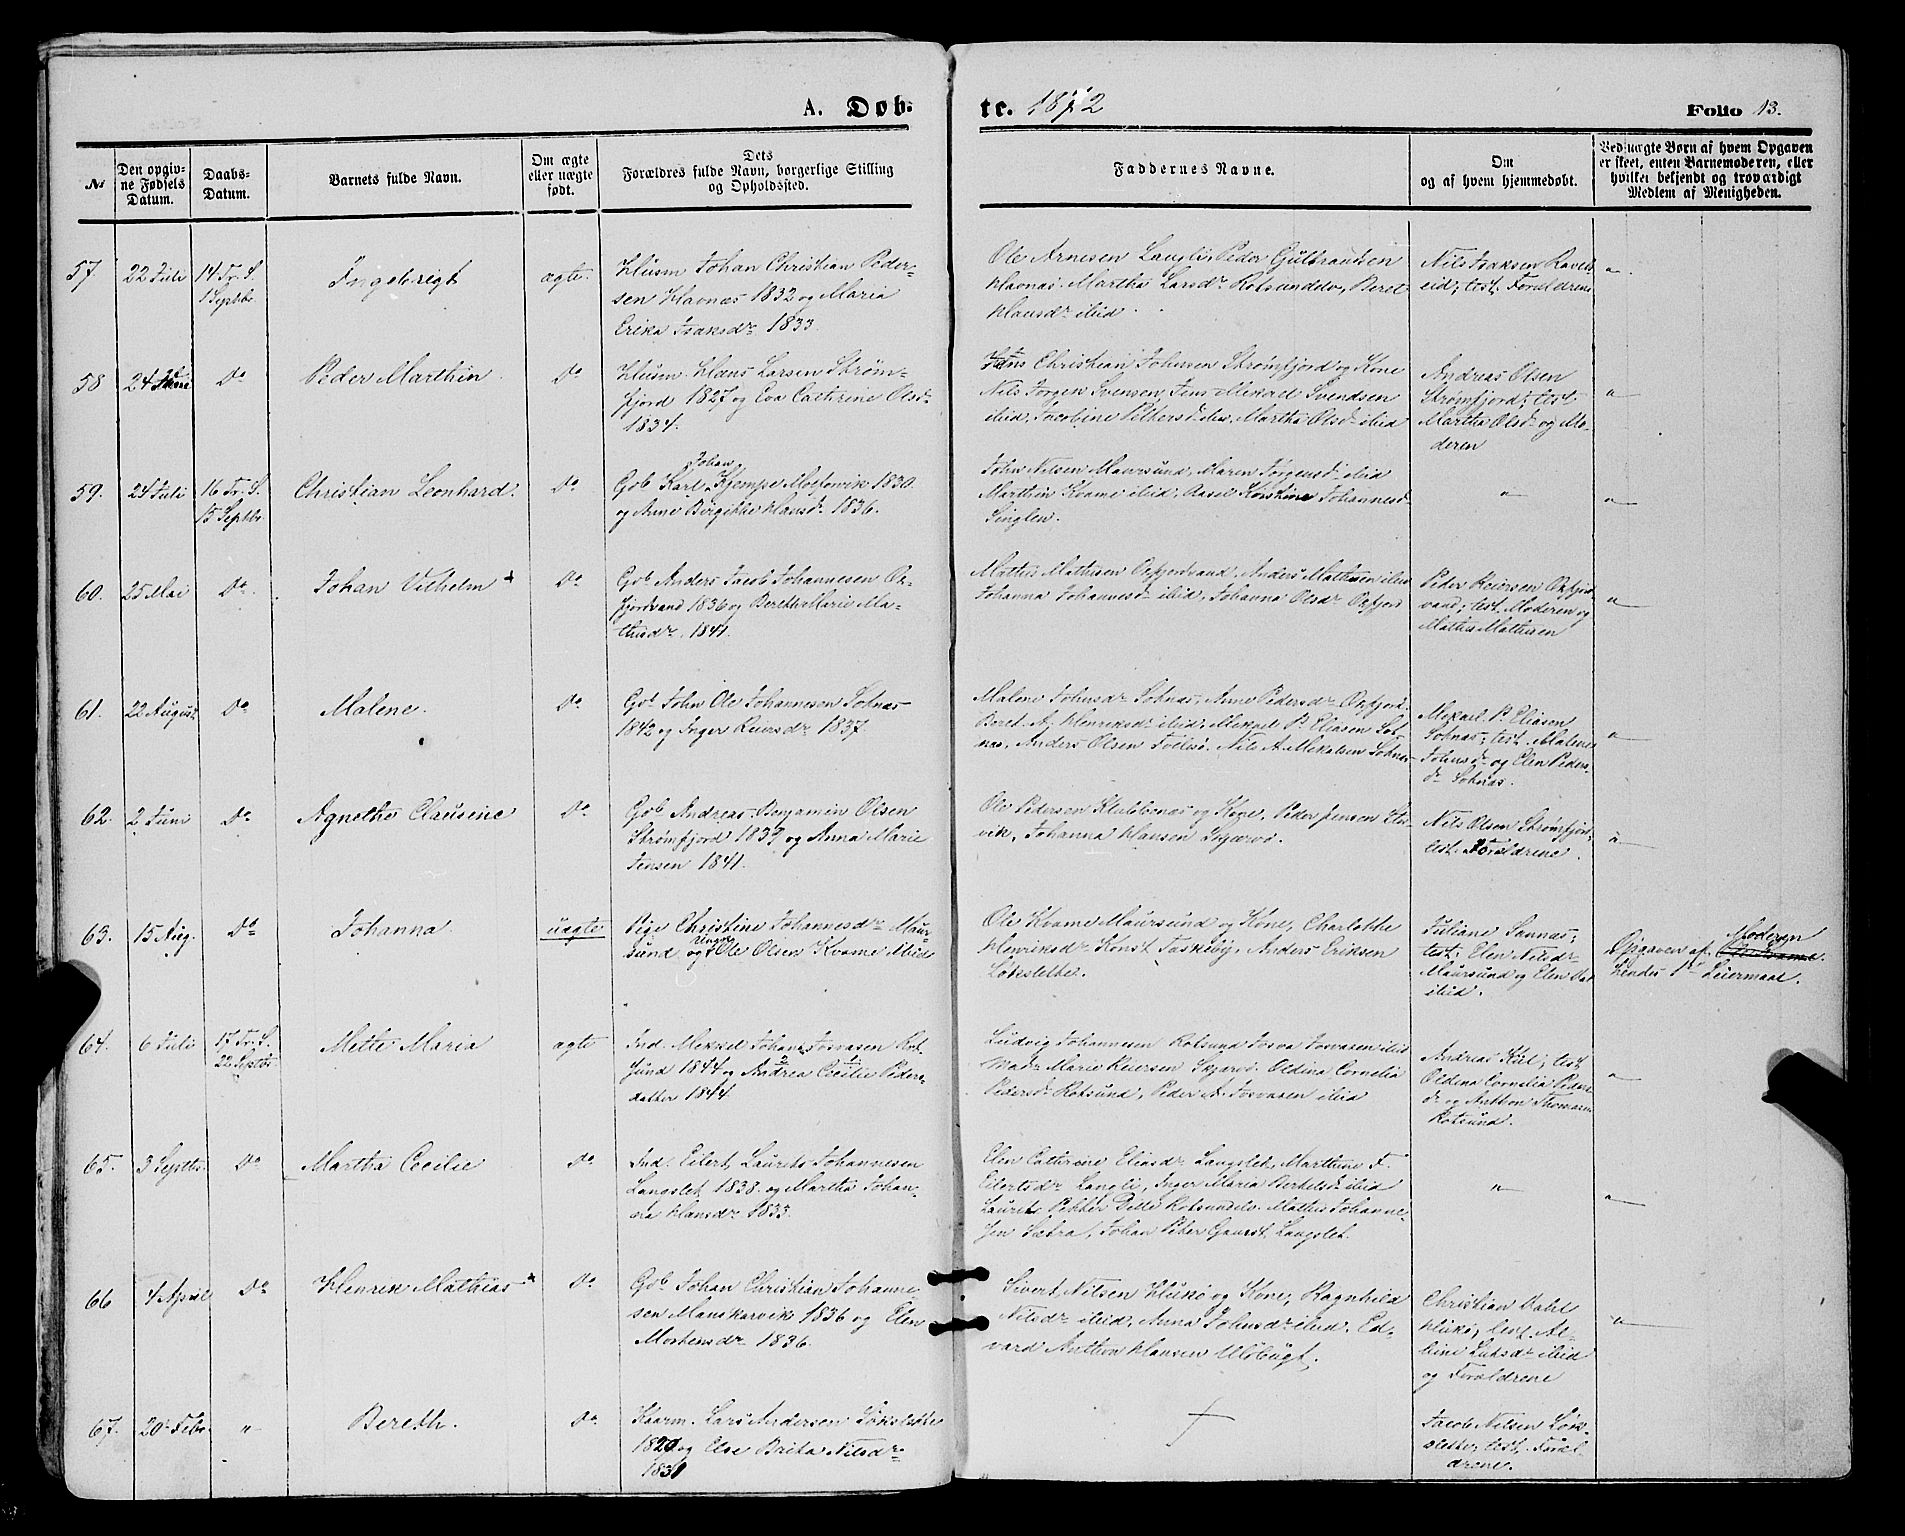 A. Døb-
te. 1872
Folio 13.
№
Den opgiv-
ne Fødsels
Datum.
Daabs-
Datum.
Barnets fulde Navn.
Om ægte
eller uægte
født.
Dets
Forældres fulde Navn, borgerlige Stilling
og Opholdssted.
Faddernes Navne.
Om
og af hvem hjemmedøbt.
Ved uægte Børn af hvem Opgaven
er skeet, enten Barnemoderen, eller
hvilket bekjendt og troværdigt
Medlem af Menigheden.
57. 22 Juli 14 Tr. S.
1 Septbr.
Ingebrigt
ægte
Husm Johan Christian Peder-
sen Havnæs 1832 og Maria
Erika Isaksdr 1833.
Ole Arnesen Langli, Peder Gulbrandsen
Havnæs. Martha Larsdr Rotsundelv, Beret
Hansdr ibid.
Nils Isaksen
eid; test. Forældrene
"
58 24 Do
Peder Marthin
Do
Husm. Hans Larsen Strøm-
fjord 1827 og Eva Cathrine Olsdr
1834.
Christian Johnsen Strømfjord og Kone
Nils Jørgen Svensen, Jens Mekael Svendsen
ibid, Jacobine ibid, Martha Olsdr ibid
Andreas Olsen
Strømfjord; test
Martha Olsdr og Mo-
deren
"
59. 24 Juli 16 Tr. S.
15 Septbr.
Christian Leonhard.
Do
Johan
Gbr Karl Kjempe 1830
og Anne Birgitte Hansdr 1836.
John Nilsen Maursund, Maren Jørgensdr ibid
Marthin Kvame ibid, Johannesd
Singlen.
"
"
60. 25 Mai Do
Johan Vilhelm +
Do
Gbr Anders Jacob Johannesen Ox-
fjordvand 1836 og Bereth Marie Ma-
thisdr. 1841.
Mathis Mathisen Oxfjordvand, Anders Mathisen ibid
Johanna Johannesdr ibid, Johanna Olsdr Oxfjord
Peder Reiersen Oxfjord
vand; test. Moderen og
Mathis Mathisen
"
61. 22 August Do
Malene.
Do
Gbr John Ole Johannesen Sohnæs
1842 og Inger Reiersdr 1837
Malene Johnsdr Sohnæs, Anne Pedersdr Oxfjord.
Beret A. Henriksdr ibid, Mekael P. Eliasen Soh-
næs, Anders Olsen Follesø. Nils A. Mikalsen Sohnæs
Mekael P. Eliasen
Sohnæs; test. Malene
Johnsdr og Elen Peders-
dr Sohnæs.
"
62. 2 Juni Do
Agnethe Clausine
Do
Gbr Andreas Benjamin Olsen
Strømfjord 1839 og Anna Marie
Jensen 1841.
Ole Pedersen Klubbenæs og Kone, Peder Jensen
vik, Johanna Hansen Skjærvø.
Nils Olsen Strømfjord
test. Forældrene.
"
63. 15 Aug. Do
Johanna.
uægte
Pige Christine Johannesdr Maur-
sund og Ungkl Ole Olsen Kvame ibid
Ole Kvame Maursund og Kone, Charlotte
Henriksdr Taskeby, Anders Eriksen
Løkslette.
Juliane Sannæs;
test. Elen Nilsdr
Maursund og Elen
ibid.
Moderen
Opgaven af
hendes 1te Leiermaal.
64. 6 Juli 17 Tr. S.
22 Septbr.
Mette Maria
ægte
Ind. Mekkel Johan Josvasen Rot-
sund 1844 og Andrea Cecilie Peders-
datter 1844.
Ludvig Johannesen Rotsund Josva Josvasen ibid
Madm Marie Reiersen Skjærvø. Oldina Cornelia
Pedersdr Rotsund, Peder A. Josvasen ibid
Andreas Kiil; test
Oldina Cornelia Peders
dr og Anthon Thomasen
Rotsund.
"
65. 3 Septbr. Do
Martha Cecilie
Do
Ind. Eilert Laurits Johannesen
Langslet 1838. og Martha Johan-
na Hansdr 1833.
Elen Cathrine Eliasdr Langslet, Marthine F.
Eilertsdr Langli, Inger Maria Berteldr ibid
Laurits Pekker Dille Rotsundelv. Mathis Johanne-
sen Sætra, Johan Peter Langslet.
"
"
66 4 April Do
Henrik Mathias +
Do
Gbr Johan Christian Johanne-
sen Manskarvik 1836 og Elen
Mortensdr 1836.
Sivert Nilsen Hukø og Kone, Ragnhild
Nilsdr ibid, Anna Johnsdr ibid. Ed-
vard Anthon Hansen Uløbugt.
Christian Dahl
Hukø; test. Al-
bine ibid
og Forældrene
"
67. 20 Febr. "
Bereth.
Do
Kaarm. Lars Andersen Løkslette
1820 og Else Brita Nilsdr
1831
+
Jacob Nilsen Løk-
slette; test. Foræl-
drene.